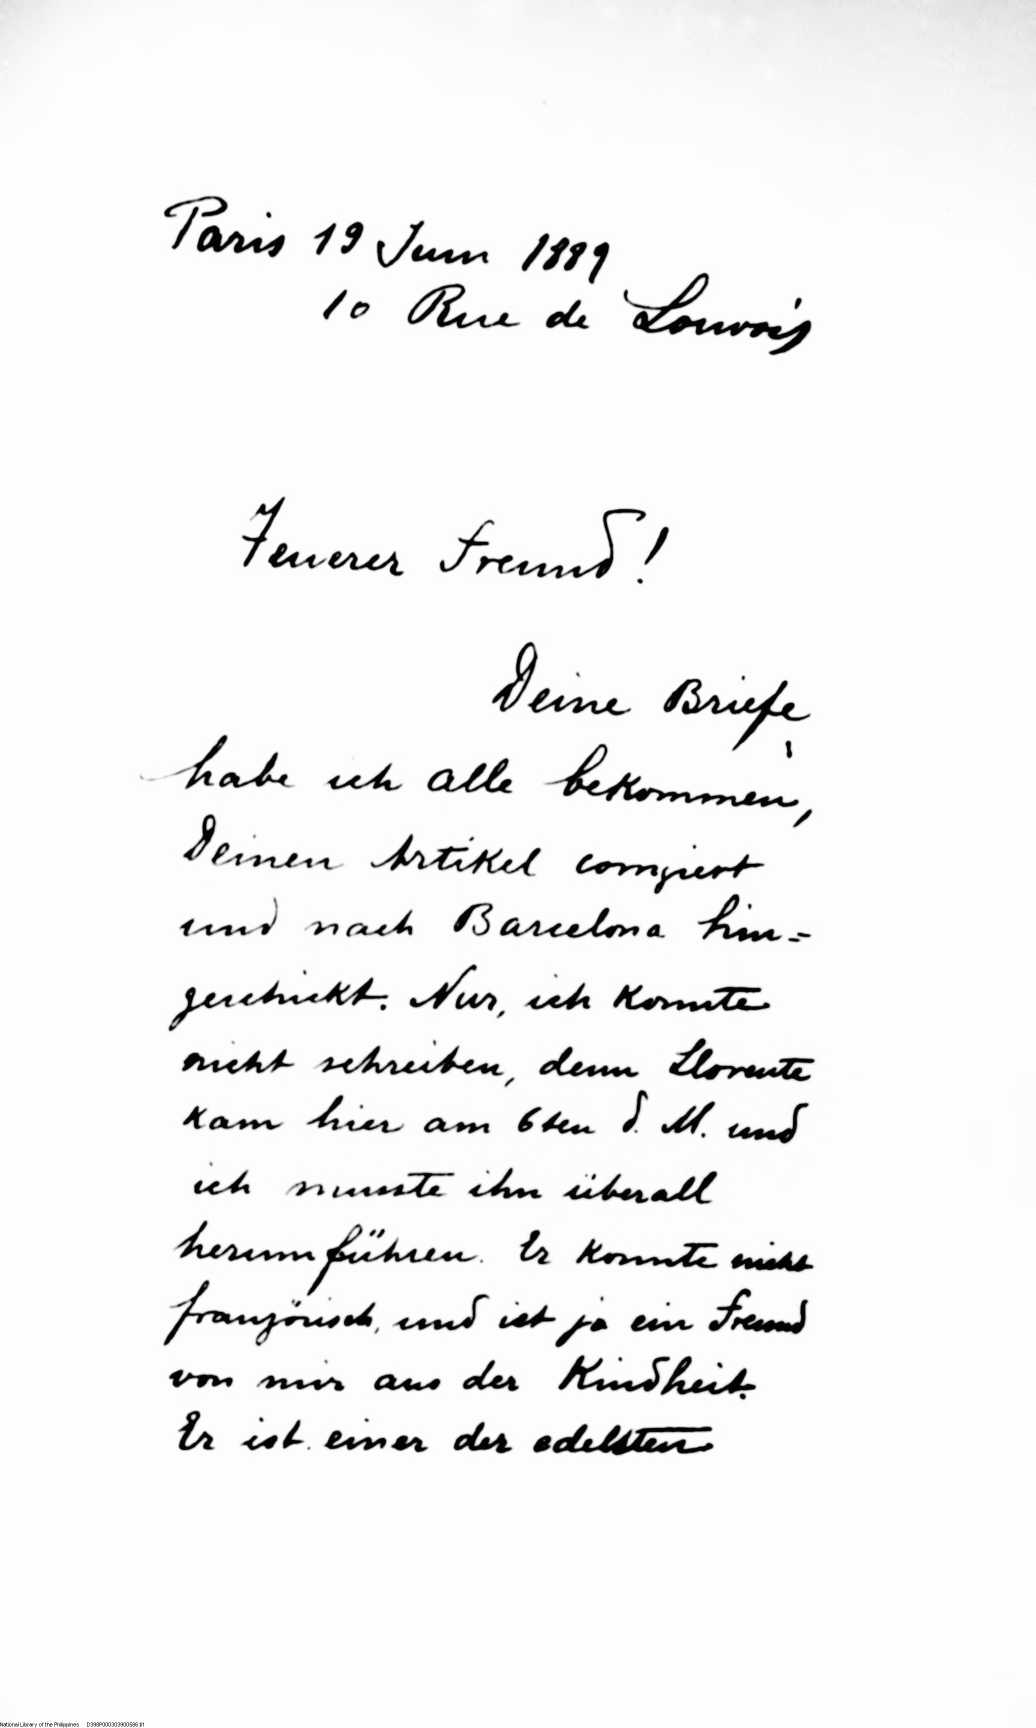 Paris 19 Juni 1889
10 Rue de Louvois
Teuerer Freund!
Deine Briefe
habe ich alle bekommen,
Deinen Artikel corrigiert
und nach Barcelona hin=
geschickt. Nur, ich konnte
nicht schreiben, denn Llorente
kam hier am 6ten d. M. und
ich musste ihn überall
herumführen. Er konnte nicht
französisch, und ist ja ein Freund
von mir aus der Kindheit.
Er ist einer der edelsten
National Library of the Philippines